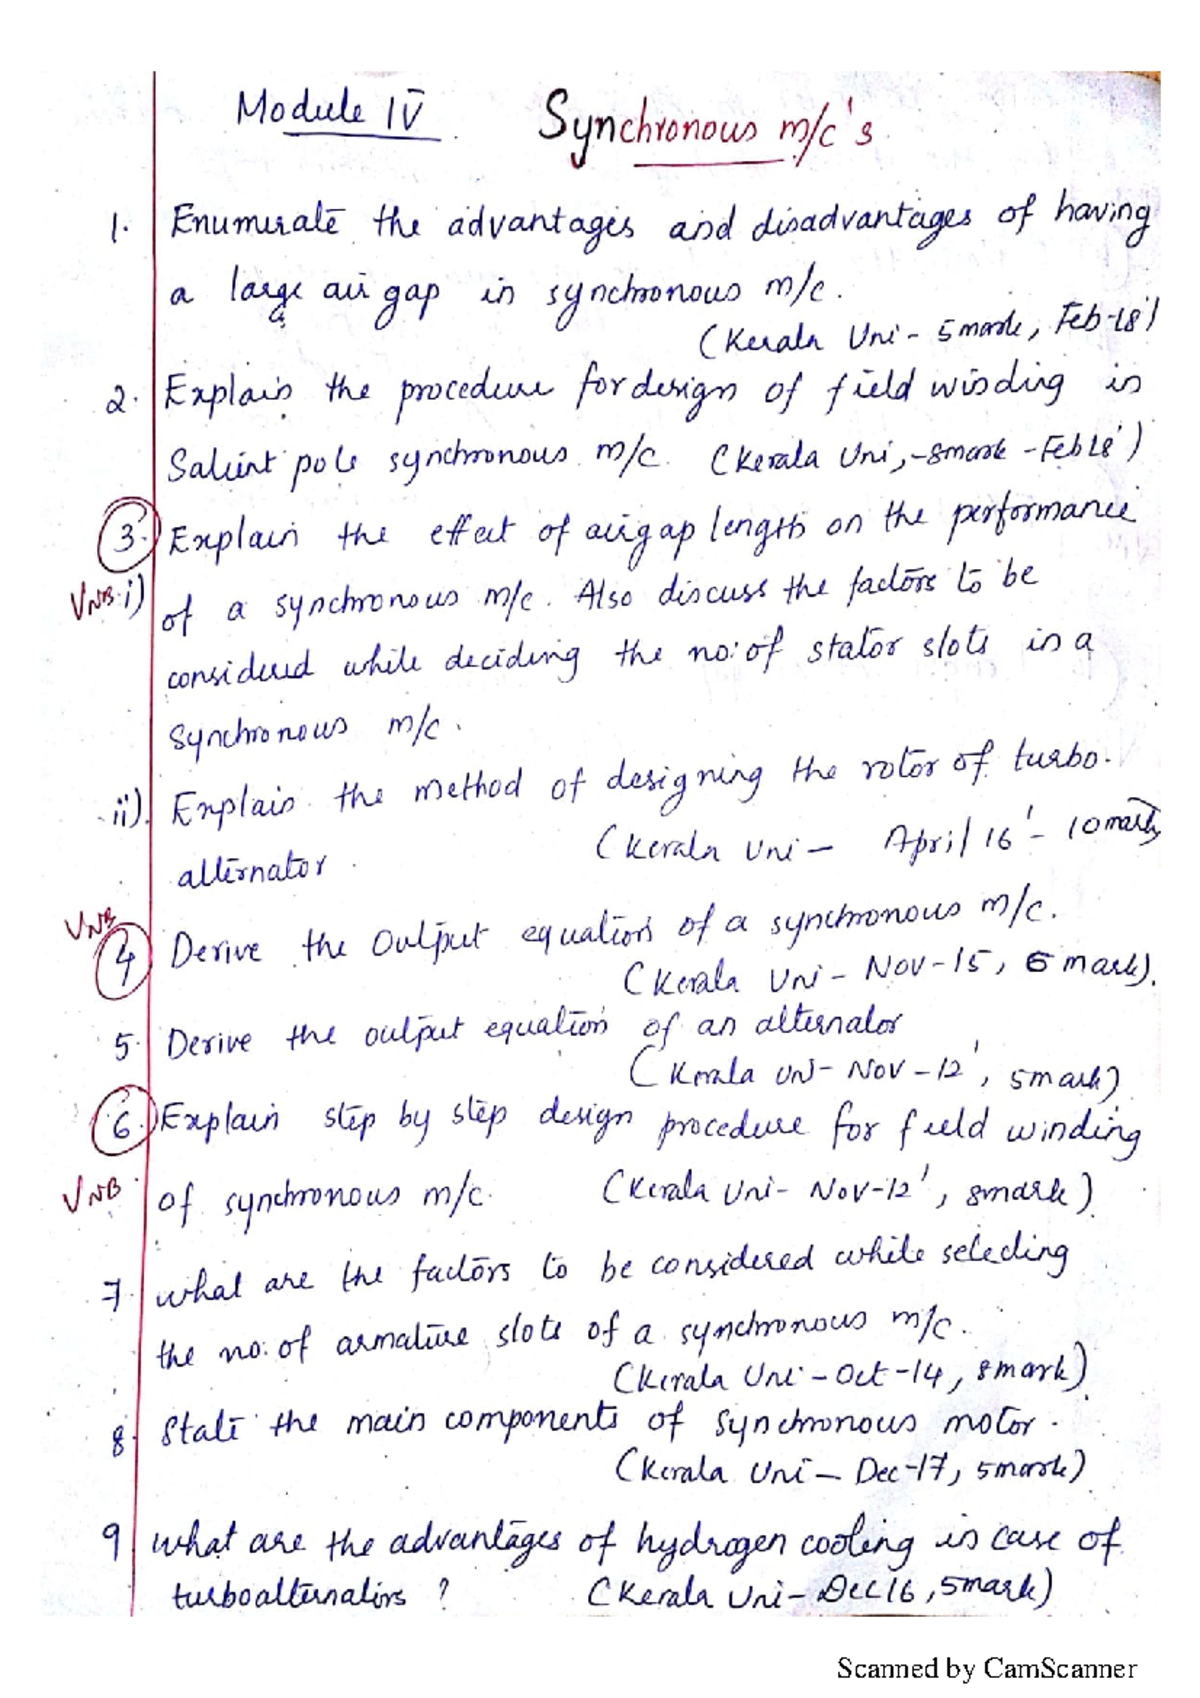 Module IV Synchronous m/c's
1. Enumerate the advantages and disadvantages of having
a large air gap in synchronous m/c.
(Kerala Uni - 5 mark, Feb-18')
2. Explain the procedure for design of field winding in
Salient pole synchronous m/c. (Kerala Uni, -8mark -Feb18')
3. Explain the effect of airgap length on the performance
VNB i) of a synchronous m/c. Also discuss the factors to be
considered while deciding the no: of stator slots in a
synchronous m/c.
ii) Explain the method of designing the rotor of turbo-
alternator. (Kerala Uni - April 16' - 10 mark)
VNB
4 Derive the output equation of a synchronous m/c.
(Kerala Uni - Nov-15, 6 mark).
5. Derive the output equation of an alternator
(Kerala Uni - Nov-12', 5mark)
6. Explain step by step design procedure for field winding
VNB of synchronous m/c. (Kerala Uni- Nov-12', 8mark)
7. what are the factors to be considered while selecting
the no: of armature slots of a synchronous m/c.
(Kerala Uni - Oct-14, 8mark)
8. State the main components of synchronous motor.
(Kerala Uni - Dec-17, 5mark)
9 what are the advantages of hydrogen cooling in case of
turboalternators ? (Kerala Uni - Dec16, 5mark)
Scanned by CamScanner